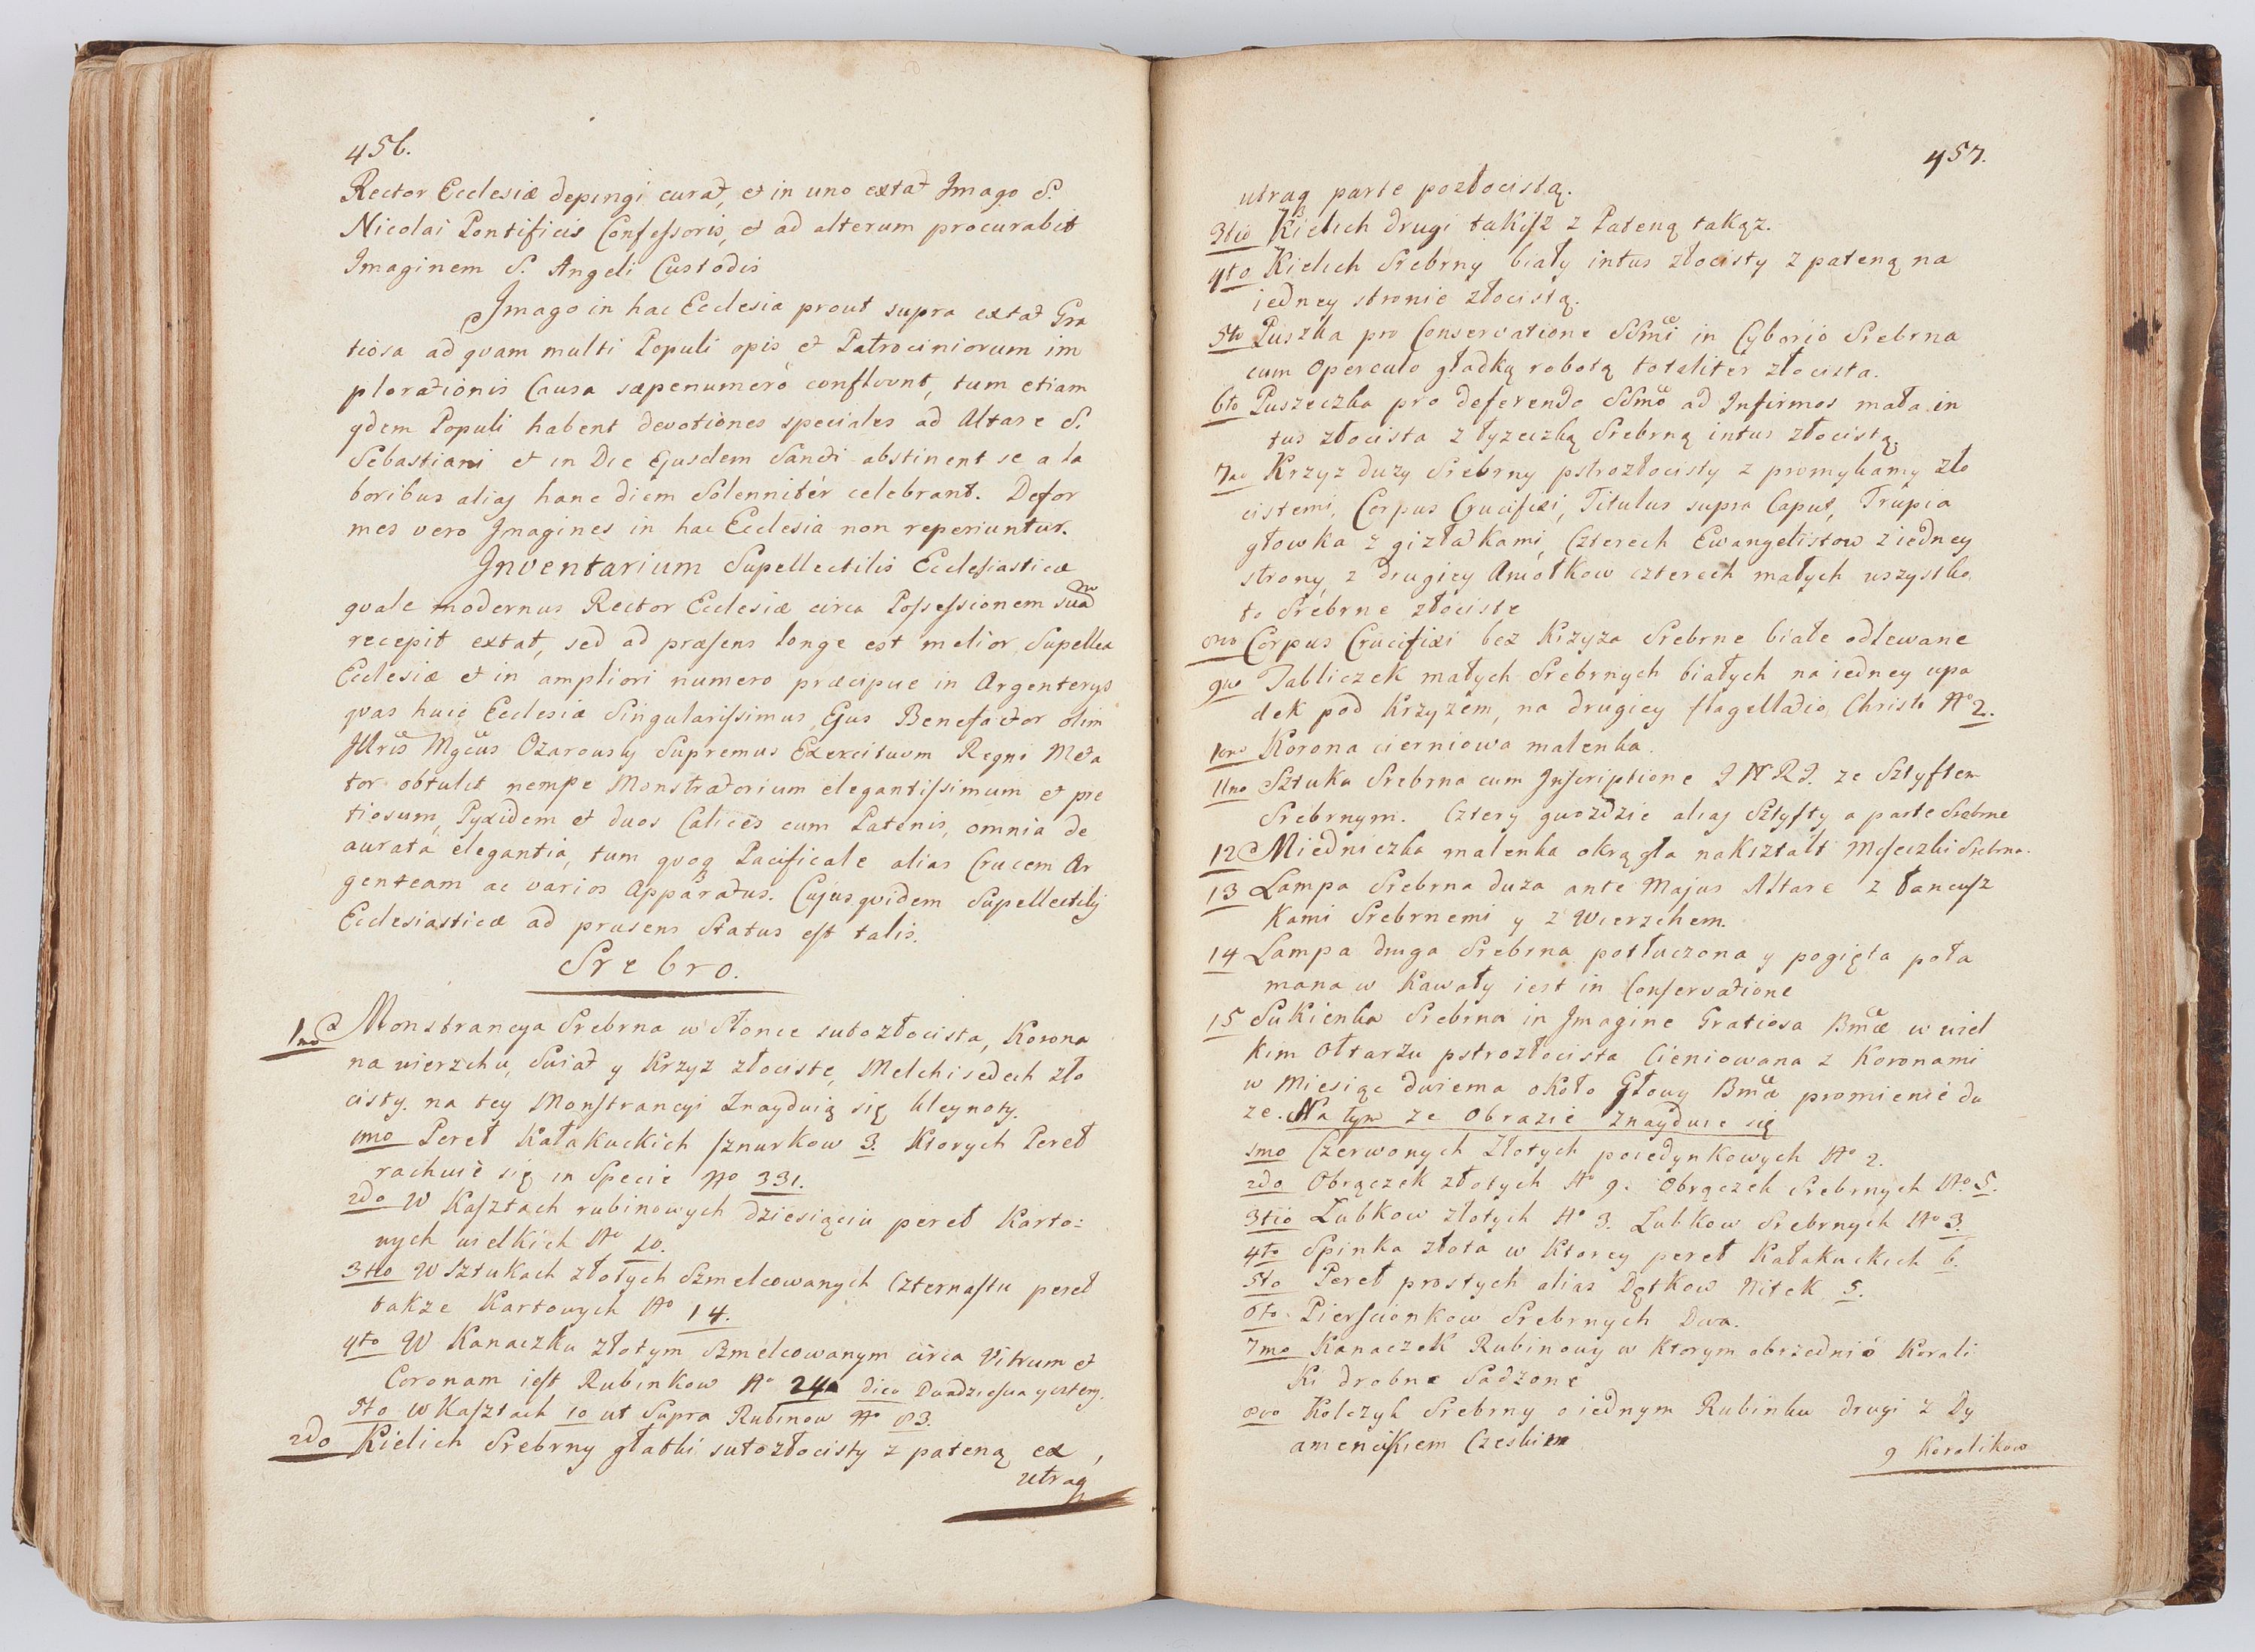 456.
Rector Ecclesiæ depingi curat, et in uno extat Imago S.
Nicolai Pontificis Confessoris, et ad alterum procurabit
Imaginem S. Angeli Custodis
Imago in hac Ecclesia prout supra extat Gra
tiosa ad quam multi Populi opis et Patrociniorum im
plorationis Causa sæpenumero confluunt, tum etiam
ydem Populi habent devotiones speciales ad Altare S.
Sebastiani et in Die Ejusdem Sancti abstinent se a la
boribus alias hanc diem Solenniter celebrant. Defor
mes vero Imagines in hac Ecclesia non reperiuntur.
Inventarium Supellectilis Ecclesiasticæ
quale modernus Rector Ecclesiæ circa Possessionem suam
recepit extat, sed ad præsens longe est melior Supellex
Ecclesiæ et in ampliori numero præcipue in Argenterys
quas huic Ecclesiæ Singularissimus Ejus Benefactor olim
Illris Mgcus Ozarowsky Supremus Exercituum Regni Meta
tor obtulit nempe Monstratorium elegantissimum et pre
tiosum, Pyxidem et duos Calices cum Patenis, omnia de
aurata elegantia, tum quoq Pacificale alias Crucem Ar
genteam ac varios Apparatus. Cujus quidem Supellectilis
Ecclesiasticæ ad præsens Status est talis.
Srebro.
1mo Monstrancya Srebrna w Słonce sutozłocista, Korona
na wierzchu, Swiat y Krzyz złociste, Melchisedech zło
cisty. na tey Monstrancyi Znayduią się kleynoty.
1mo Pereł Kałakuckich sznurkow 3. Ktorych Pereł
rachuie się in Specie No 331.
2do W Kasztach rubinowych dziesięciu pereł Karto=
wych wielkich No 10.
3tio W Sztukach złotych Szmelcowanych Czternastu pereł
takze Kartowych No 14.
4to W Kanaczku złotym Szmelcowanym circa Vitrum et
Coronam iest Rubinkow No 24 dico Dwadziescia y cztery.
5to w Kasztach 10 ut Supra Rubinow No 83.
2do Kielich Srebrny głatki sutozłocisty z pateną ex
utraq
457.
utraq parte pozłocistą.
3tio Kielich drugi takisz z Pateną takąz.
4to Kielich Srebrny biały intus złocisty z pateną na
iedney stronie złocistą.
5to Puszka pro Conservatione SSmi in Cyborio Srebrna
cum Operculo gładką robotą totaliter złocista.
6to Puszeczka pro deferendo SSmo ad Infirmos mała in
tus złocista z łyzeczką Srebrną intus złocistą.
7mo Krzyz duzy Srebrny pstrozłocisty z promykamy zło
cistemi, Corpus Crucifixi, Titulus supra Caput, Trupia
głowka z gizładkami, Czterech Ewangelistow z iedney
strony, z drugiey Aniołkow czterech małych wszystko
to Srebrne złociste
8vo Corpus Crucifixi bez Krzyza Srebrne białe odlewane
9no Tabliczek małych Srebrnych białych na iedney upa
dek pod Krzyzem, na drugiey flagellatio Christi No 2.
10mo Korona cierniowa malenka.
11mo Sztuka Srebrna cum Inscriptione I N R I. ze Sztyftem
Srebrnym. Cztery gwozdzie alias Sztyfty a parte Srebrne
12 Miedniczka malenka okrągła nakształt Miseczki Srebrna.
13 Lampa Srebrna duza ante Majus Altare z łancusz
kami Srebrnemi y z Wierzchem.
14 Lampa druga Srebrna potłuczona y pogięta poła
mana w Kawały iest in Conservatione
15 Sukienka Srebrna in Imagine Gratiosa Bmæ w wiel
kim Ołtarzu pstrozłocista Cieniowana z Koronami
w Miesiąc dwiema około Głowy Bmæ promienie du
ze. Na tym ze Obrazie znayduie się
1mo Czerwonych Złotych poiedynkowych No 2.
2do Obrączek złotych No 9. Obrączek Srebrnych No. 5.
3tio Lubkow złotych No 3. Lubkow Srebrnych No 3.
4to Spinka złota w Ktorey pereł Kałakuckich 6.
5to Pereł prostych alias Dętkow Nitek 5.
6to Pierscionkow Srebrnych Dwa.
7mo Kanaczek Rubinowy w Ktorym obrzednio Korali
ki drobne Sadzone
8vo Kolczyk Srebrny o iednym Rubinku drugi z Dy
amencikiem Czeskim
9 Koralikow